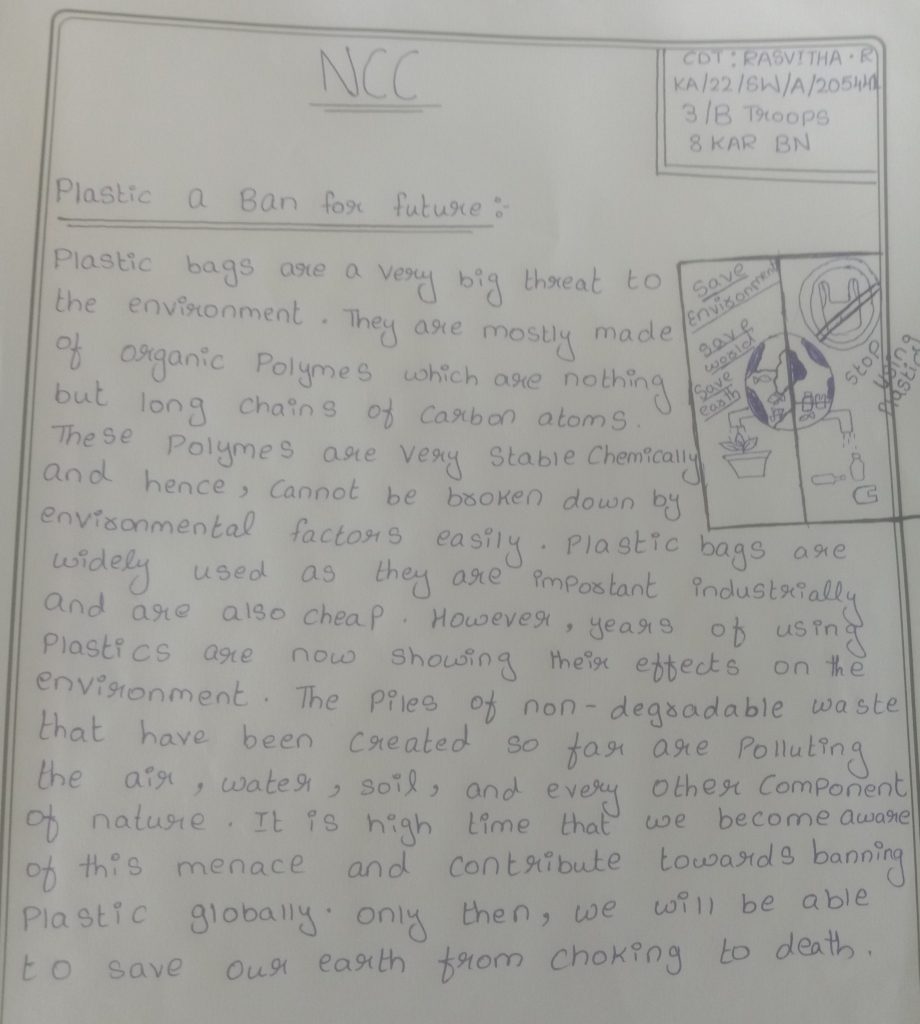 NCC
CDT : RASVITHA . R
KA/22/SW/A/20544
3/B Troops
8 KAR BN
Plastic a Ban for future :-
Plastic bags are a very big threat to
the environment . They are mostly made
of organic Polymes which are nothing
but long chains of carbon atoms.
These Polymes are very stable chemically
and hence , cannot be broken down by
environmental factors easily . Plastic bags are
widely used as they are important industrially
and are also cheap . However , years of using
Plastics are now showing their effects on the
environment . The Piles of non-degradable waste
that have been created so far are Polluting
the air , water , soil , and every other component
of nature . It is high time that we become aware
of this menace and contribute towards banning
Plastic globally . only then , we will be able
to save our earth from choking to death .
Save
Environment
Save
world
Save
earth
Stop
using
Plastic